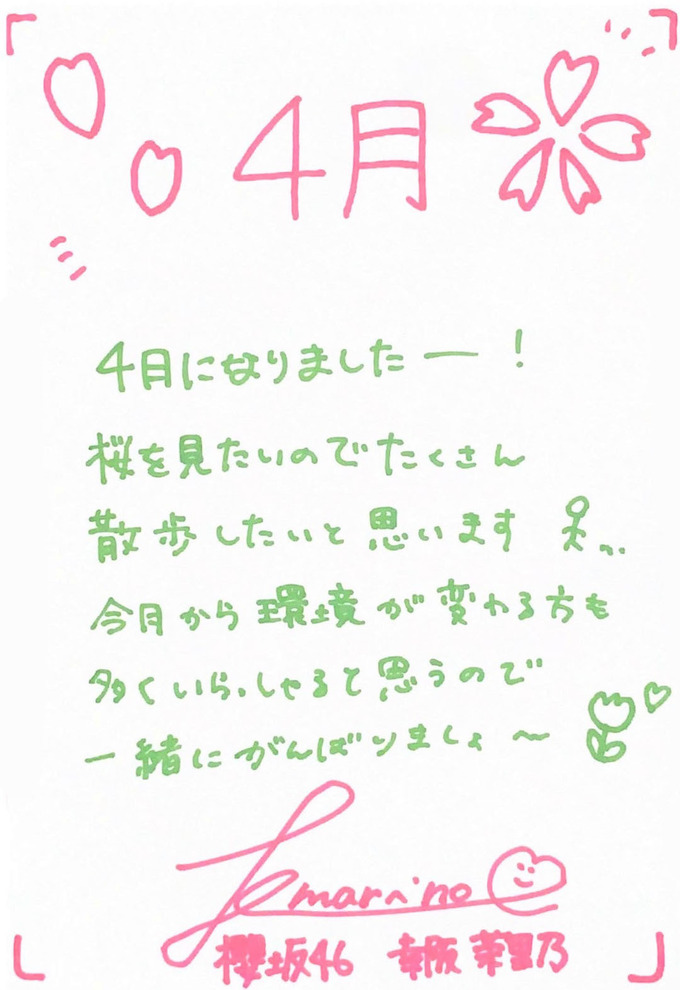 4月
4月になりましたー！
桜を見たいのでたくさん
散歩したいと思います
今月から環境が変わる方も
多くいらっしゃると思うので
一緒にがんばりましょ〜
marino
櫻坂46 幸阪茉里乃